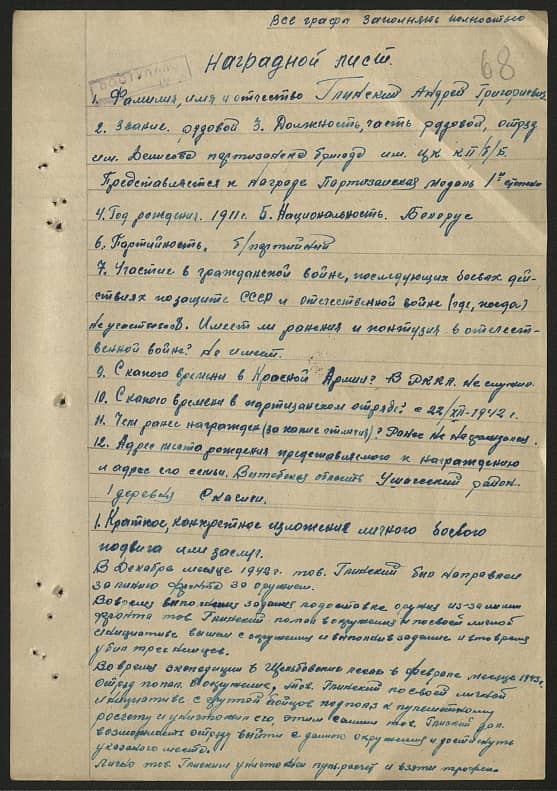 Все графы заполнять полностью
68
Наградной лист.
1. Фамилия, имя и отчество Глинский Андрей Григориевич
2. Звание. рядовой 3. Должность, часть рядовой, отряд
им. Денисова партизанска бригада им. ЦК КП/б/Б.
Представляется к награде Партизанская медаль 1ой степени
4. Год рождения. 1911 г. 5. Национальность. Белорус
6. Партийность. б/партийный
7. Участие в гражданской войне, последующих боевых дей-
ствиях по защите СССР и отечественной войне (где, когда)
Не участвовал. Имеет ли ранения и контузия в отечест-
венной войне? Не имеет.
9. С какого времени в Красной Армии? В РККА. Не служил.
10. С какого времени в партизанском отряде? с 22/XII-1942 г.
11. Чем ранее награжден (за какие отличия)? Ранее не награждался.
12. Адрес места рождения представляемого к награждению
и адрес его семьи. Витебская область Ушачский район.
деревня
1. Краткое, конкретное изложение личного боевого
подвига или заслуг.
В Декабре месяце 1942 г. тов. Глинский был направлен
за линию фронта за оружием.
Во время выполнения задания по доставке оружия из-за линии
фронта тов Глинский попал в окружение и по своей личной
инициативе вышел с окружения и выполнил задание и в то время
убил трех немцев.
Во время экспедиции в лесах в феврале месяце 1943 г.
отряд попал в окружение, тов. Глинский по своей личной
инициативе с группой бойцов подполз к пулеметному
расчету и уничтожил его, этим самым тов. Глинский дал
возможность отряду выйти с данного окружения и достигнуть
указанного места.
Лично тов. Глинским уничтожен пул. расчет и взяты трофеи.